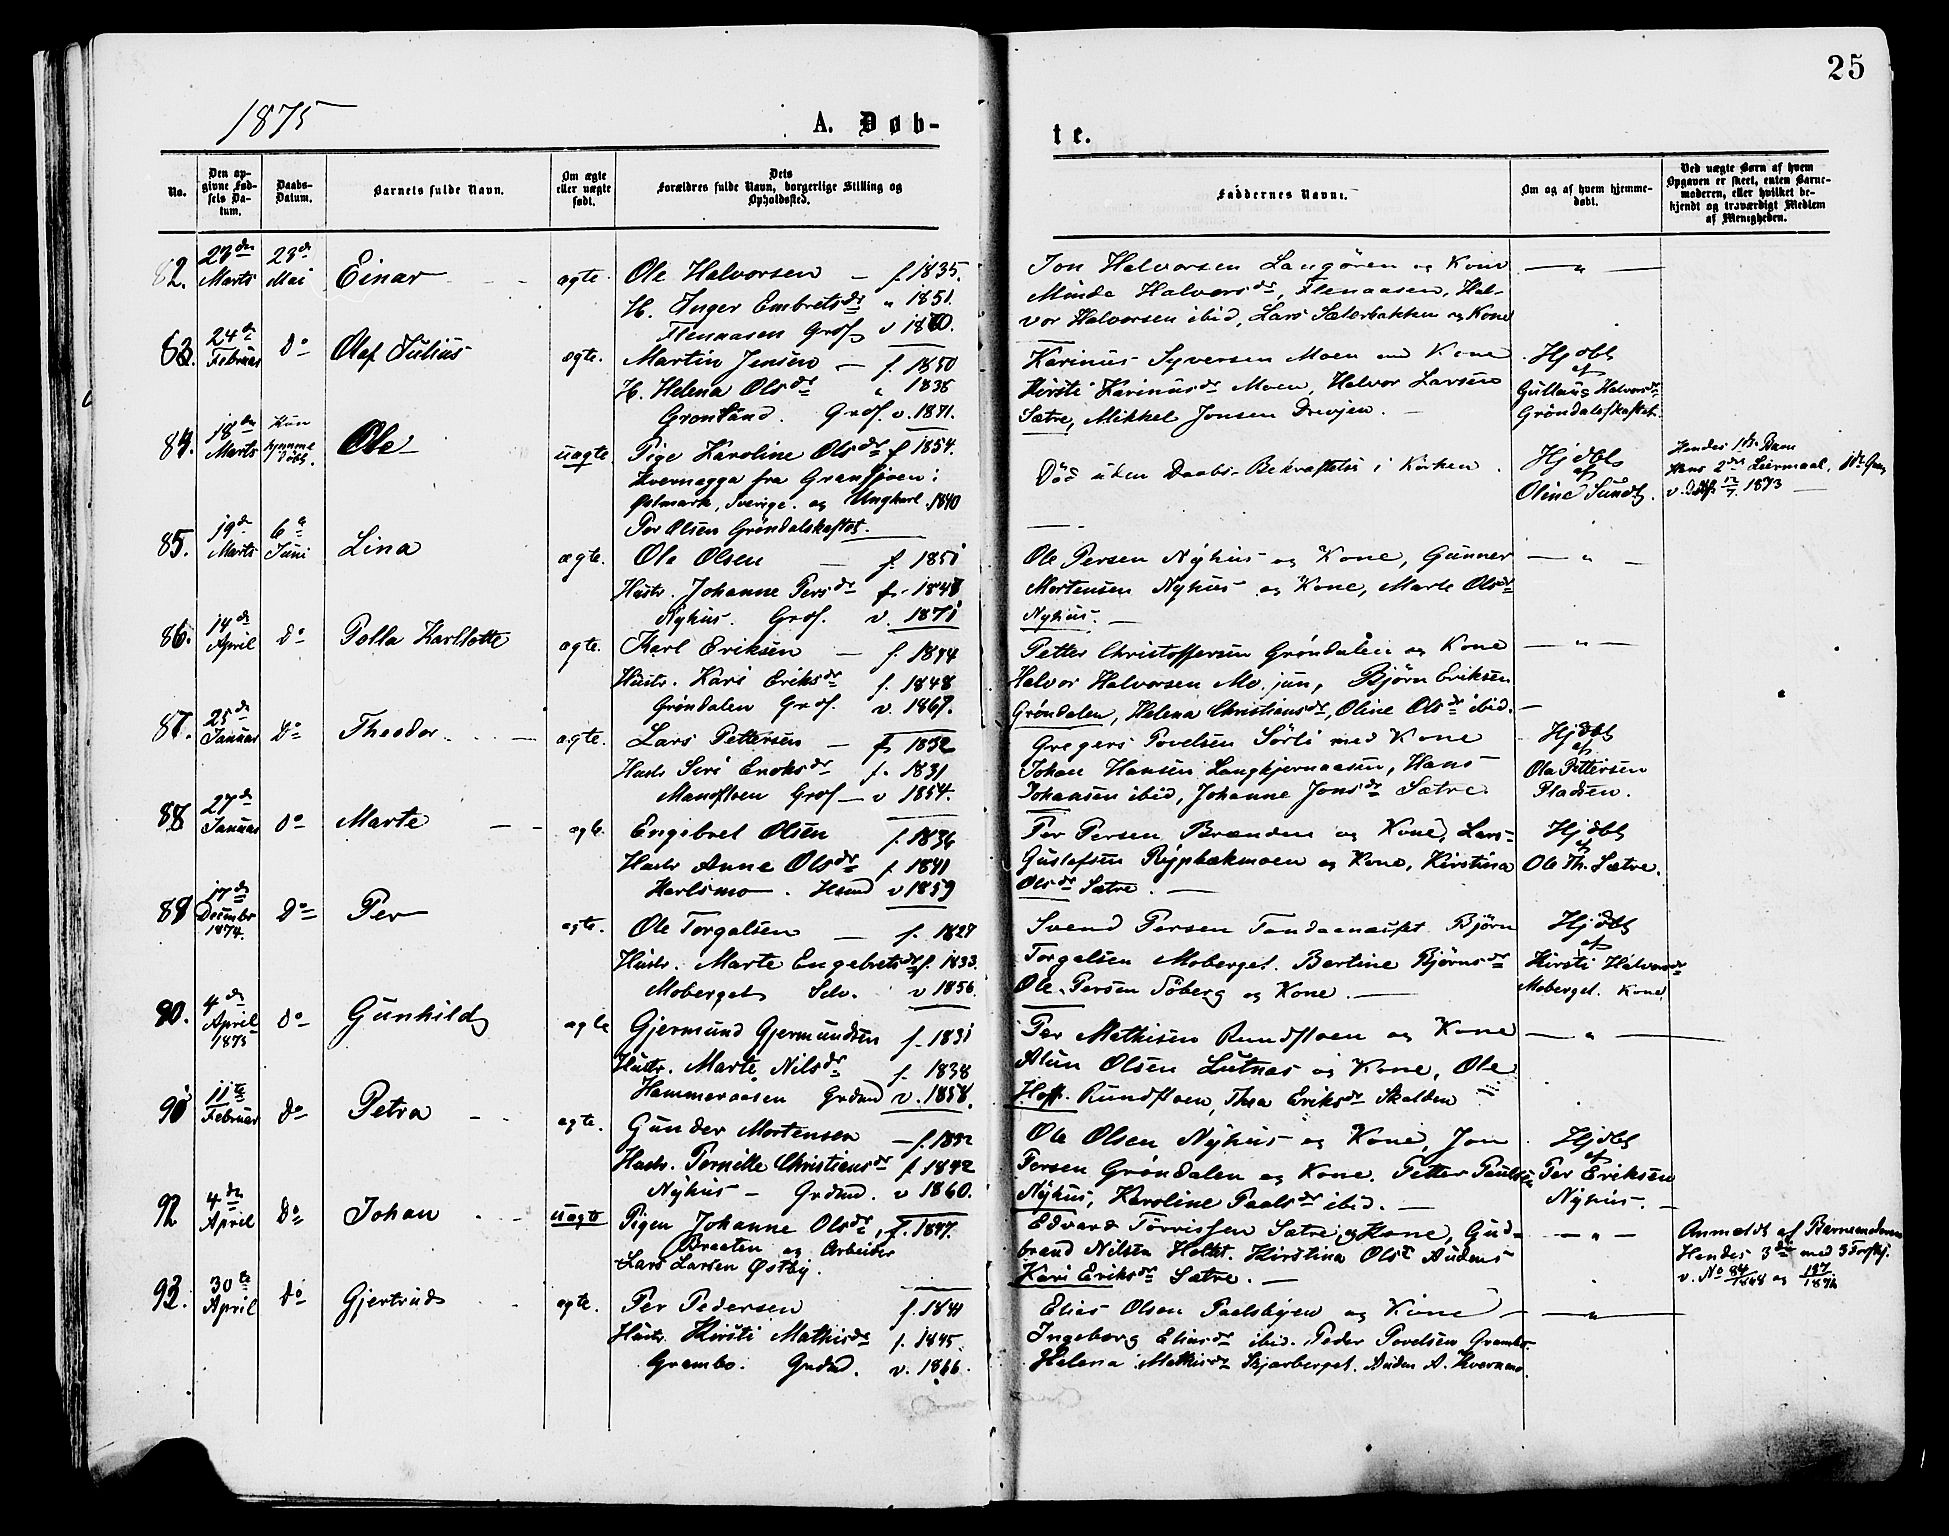 25
1875
A. Døb-
te.
No.
Den op-
givne Fød-
sels Da-
tum.
Daabs-
Datum.
Barnets fulde Navn.
Om ægte
eller uægte
født.
Dets
Forældres fulde Navn, borgerlige Stilling og
Opholdssted.
Faddernes Navne.
Om og af hvem hjemme-
døbt.
Ved uægte Børn af hvem
Opgaven er skeet, enten Barne-
moderen, eller hvilket be-
kjendt og troværdigt Medlem
af Menigheden.
82. 23de Marts 23de Mai Einar ægte. Ole Halvorsen — f. 1835.
H. Inger Embretsdr " 1851.
Flenaasen Grdf v 1870.
Jon Halvorsen Langören og Kone
Minda Halvorsdr, Flenaasen, Hal-
vor Halvorsen ibid, Lars Sæterbakken og Kone
— " —
83. 24de Februar Do Olaf Julius ægte. Martin Jensen — f. 1850
H. Helena Olsdr " 1838
Gronlund. Grdf. v. 1871.
Karinus Syversen Moen med Kone
Kirsti Karinusdr Moen, Halvor Larsen
Sætre, Mikkel Jonsen Drevjen. —
Hjdbt
af
Gullaug Halvorsdr
Grøndalskaftet.
84. 18de Marts Kun hjemme døbt. Ole uægte Pige Karoline Olsdr f 1854.
Kvernægga fra Gransjøen i
Østmark, Sverige. og Ungkarl. 1840
Per Olsen Grøndalskaftet.
Död uten Daabs-Bekræftelse i Kirken.
Hjdbt
af
Oline Sundt.
Hendes 1ste Barn
Hans 2det Leiermaal,
v. 1873 —
85. 19de Marts 6te Juni Lina ægte. Ole Olsen — f. 1851
Hustr. Johanne Persdr f. 1848
Nyhus. Grdf. v. 1871
Ole Persen Nyhus og Kone, Gunner
Mortensen Nyhus og Kone, Marte Olsdr
Nyhus. —
— " —
86. 14de April Do Polla Karllotte ægte. Karl Eriksen — f. 1844
Hustr. Kari Eriksdr f. 1848
Grøndalen Grdf. v. 1867.
Petter Christoffersen Grøndalen og Kone
Halvor Halvorsen Mo. jun, Bjørn Eriksen
Grøndalen, Helena Christiansdr, Oline Olsdr ibid. —
— " —
87. 25de Januar Do Theodor. ægte. Lars Pettersen — f. 1832
Hustr Siri Enoksdr f. 1831
Mandfloen Grdf — v 1854.
Gregers Povelsen Sørli med Kone
Johan Hansen Langkjernaasen, Hans
Johansen ibid, Johanne Jonsdr Sætre
Hjdbt
af
Ola Pettersen
Pladsen.
88 27de Januar Do Marte ægte. Engebret Olsen f. 1836
Hustr Anne Olsdr f. 1841
Karlsmo. Hsmd v 1859
Per Persen Brænden og Kone, Lars
Gustafsen Rypbækmoen og Kone, Kirstina
Olsdr Sætre. —
Hjdbt
af
Ole Th. Sætre.
89 17de Decembr 1874. Do Per ægte. Ole Torgalsen — f. 1827
Hustr. Marte Engebretsdr f. 1833.
Moberget Selv. v 1856.
Svend Persen Tandaanæset Bjørn
Torgalsen Moberget. Bertine Bjørnsdr
Ole Persen Söberg og Kone. —
Hjdbt
af
Kirsti Halvorsdr
Moberget. Kone
90. 4de April 1875 Do Gunhild ægte Gjermund Gjermundsen f. 1831
Hustr. Marte Nilsdr f. 1838
Hammeraasen Grdmd v. 1858.
Per Mathisen Rundfloen og Kone
Olsen Lutnæs og Kone, Ole
Hoff. Rundfloen, Thea Eriksdr Skalden
— " —
91 11te Februar Do Petra ægte. Gunder Mortensen — f. 1832
Hustr. Pernille Christiansdr f 1842
Nyhus — Grdmd. v 1860.
Ole Olsen Nyhus og Kone, Jon
Persen Grøndalen og Kone. Petter Paulsen
Nyhus, Karoline Paalsdr ibid. —
Hjdbt
af
Per Eriksen
Nyhus. —
92 4de April Do Johan uægte Pigen Johanne Olsdr, f. 1847.
Braaten og Arbeider
Lars Larsen Østby.
Edvard Törrissen Sætre og Kone, Gud-
brand Nilsen Holtet. Kirstina Olsdr Audens
Kari Eriksdr Sætre. —
— " —
Anmeldt af Barnemoderen
Hendes 3die med 3 Forskj.
v. No 84/1868 og 187/1872
93. 30te April Do Gjertrud ægte. Per Pedersen f. 1841
Hustr. Kirsti Mathisdr f. 1845.
Grambo. Grdmd. v. 1866.
Elias Olsen Paalsbyen og Kone —
Ingeborg Eliasdr ibid. Peder Povelsen Grambo.
Helena Mathisdr Skjærberget. Auden A. Kvernmo
— " —